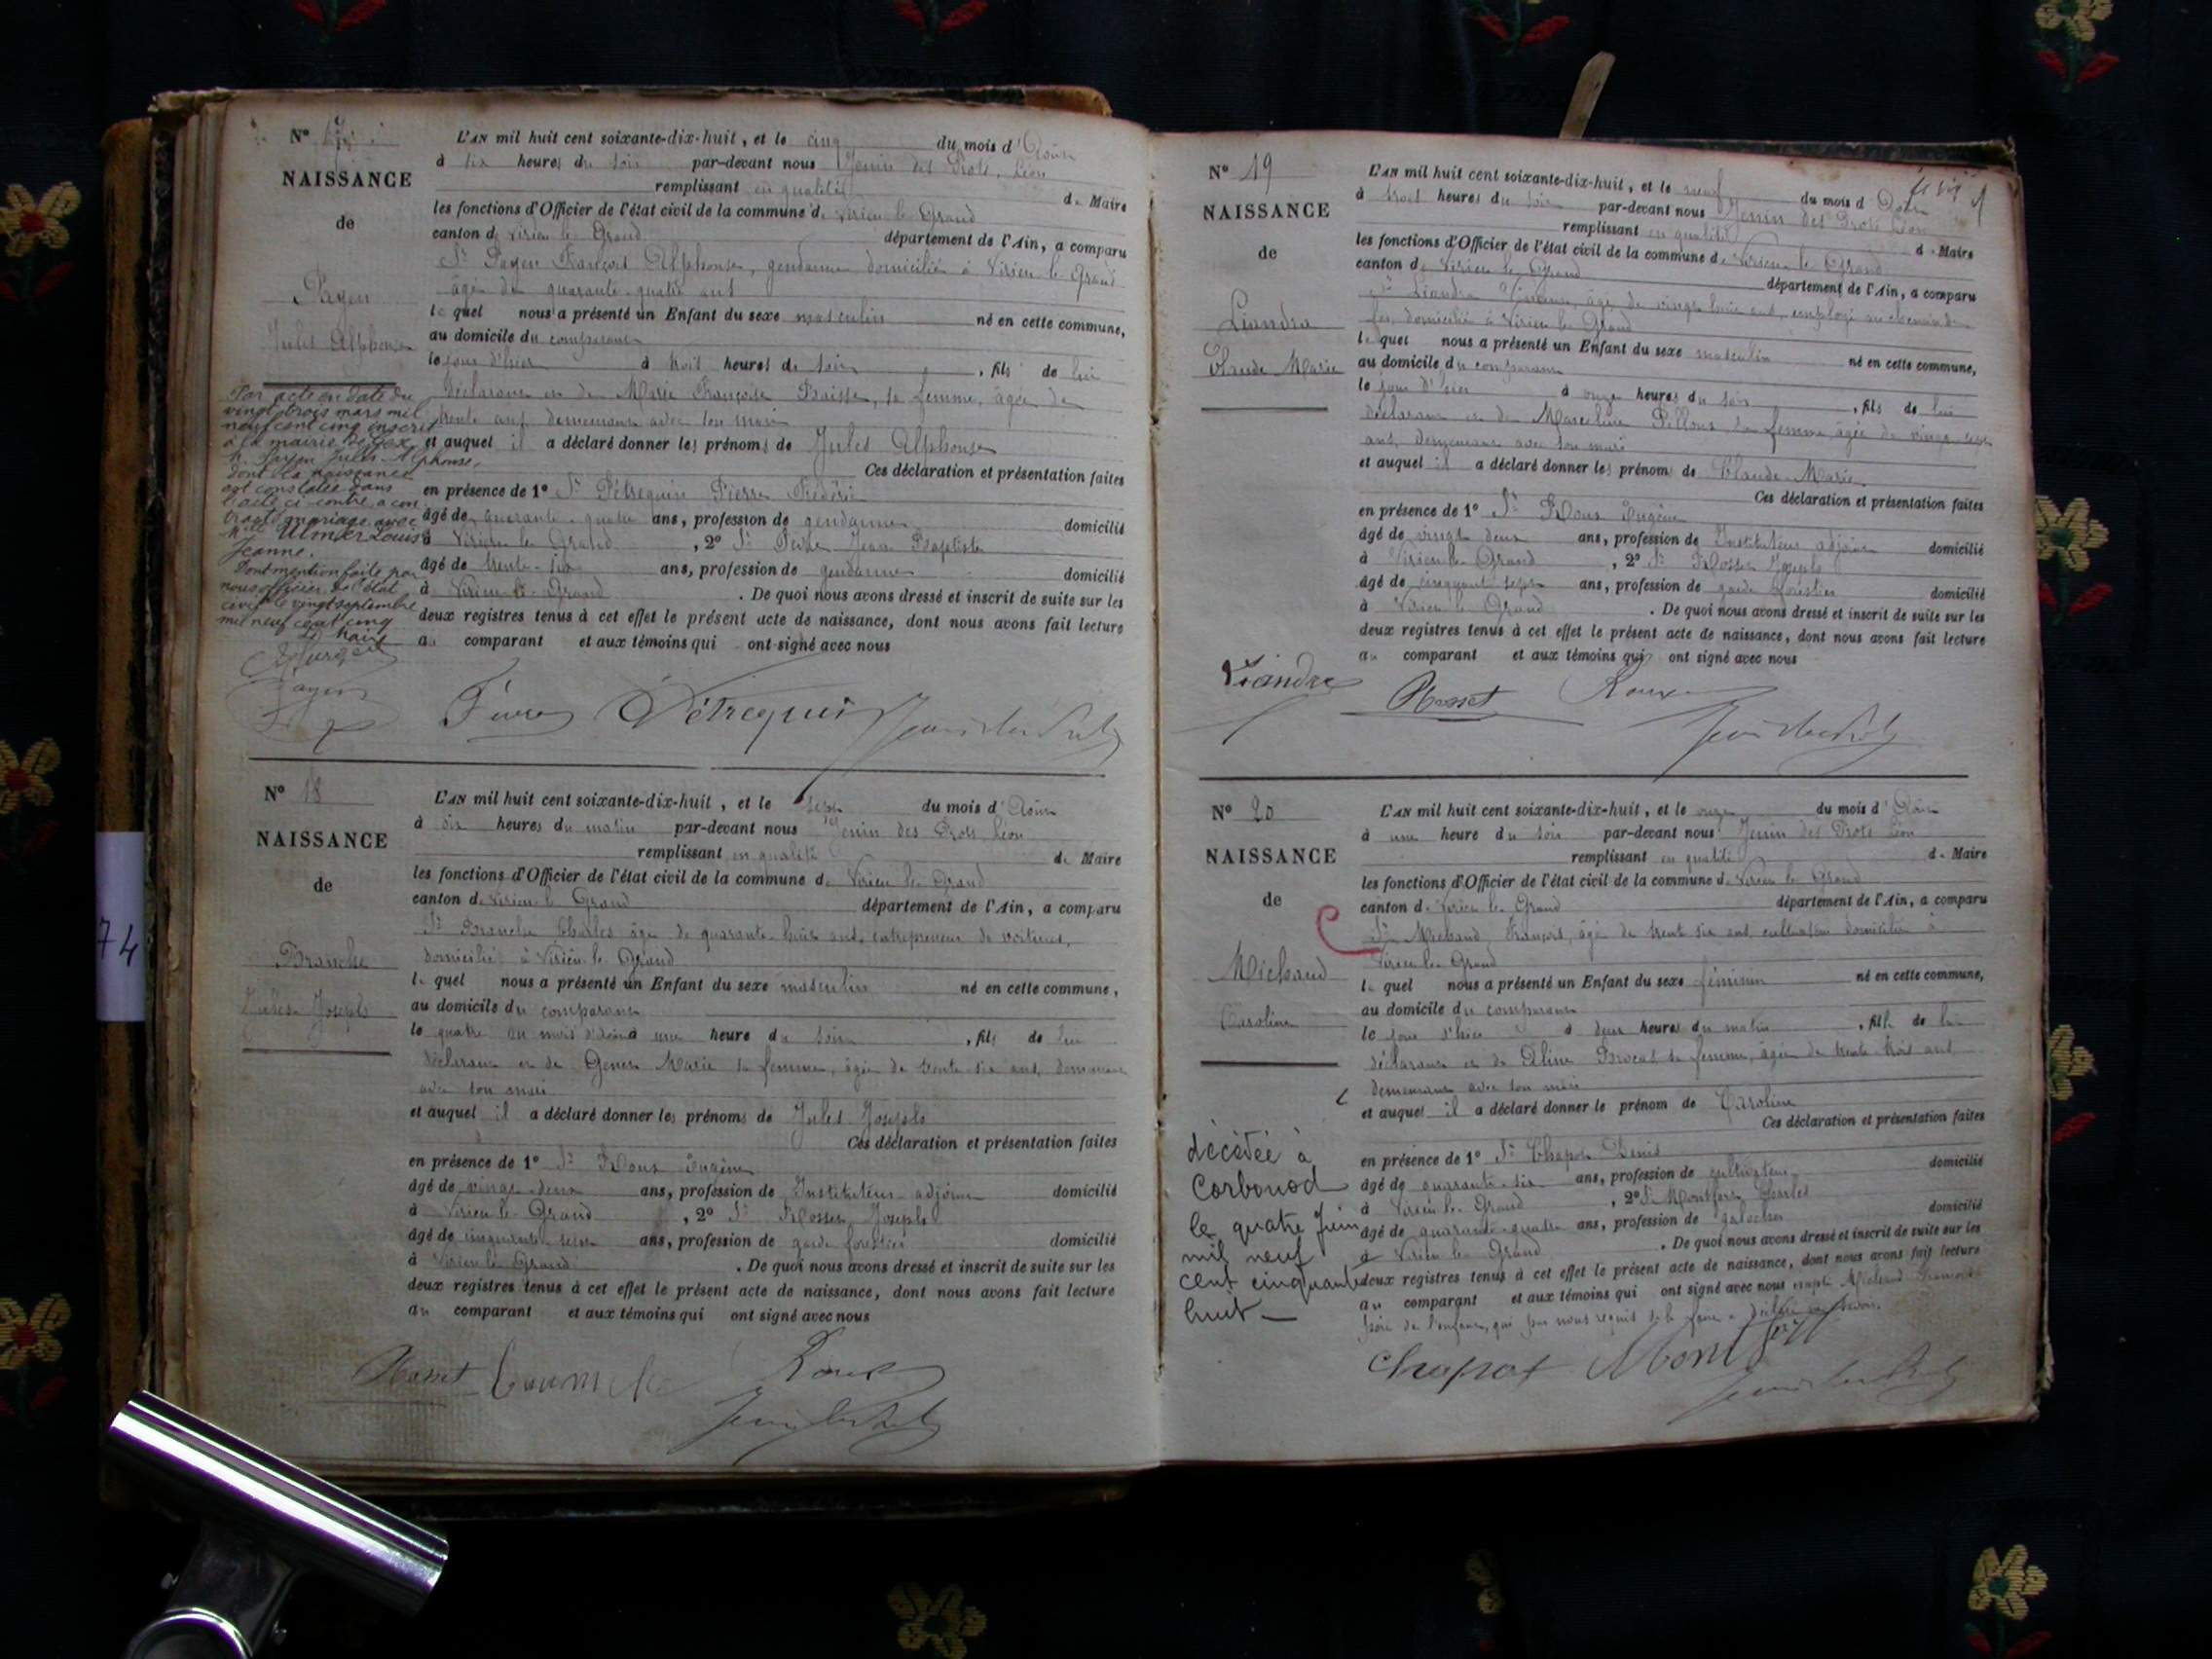 N° 17
NAISSANCE
de
Payen
Jules Alphonse
Par acte en date du
vingt trois mars mil
neuf cent cinq inscrit
à la mairie de Gex
M. Payen Jules Alphonse,
dont la naissance
est constatée dans
l'acte ci-contre a con
tracté mariage avec
Mlle Ulmer Louise
Jeanne.
Dont mention faite par
nous officier de l'état
civil le vingt septembre
mil neuf cent cinq
Le Maire
L'AN mil huit cent soixante-dix-huit, et le cinq du mois d'Août
à six heures du soir par-devant nous Jenin des Prots, Léon
remplissant en qualité de Maire
les fonctions d'Officier de l'état civil de la commune de Virieu le Grand
canton de Virieu le Grand département de l'Ain, a comparu
Sr Payen François Alphonse, gendarme domicilié à Virieu le Grand
âgé de quarante quatre ans
lequel nous a présenté un Enfant du sexe masculin né en cette commune,
au domicile du comparant
le jour d'hier à trois heures du soir, fils de lui
déclarant et de Marie Françoise Baisse, sa femme, âgée de
trente neuf demeurant avec son mari
et auquel il a déclaré donner les prénoms de Jules Alphonse
Ces déclaration et présentation faites
en présence de 1° Sr Pétrequin Pierre Frédéric
âgé de quarante-quatre ans, profession de gendarme domicilié
à Virieu le Grand, 2° Sr Jean Baptiste
âgé de trente-six ans, profession de gendarme domicilié
à Virieu le Grand. De quoi nous avons dressé et inscrit de suite sur les
deux registres tenus à cet effet le présent acte de naissance, dont nous avons fait lecture
au comparant et aux témoins qui ont signé avec nous
Payen
Pétrequin Jenin des Prots
N° 18
NAISSANCE
de
Branche
Jules Joseph
L'AN mil huit cent soixante-dix-huit, et le sept du mois d'Août
à six heures du matin par-devant nous Jenin des Prots Léon
remplissant en qualité de Maire
les fonctions d'Officier de l'état civil de la commune de Virieu le Grand
canton de Virieu le Grand département de l'Ain, a comparu
Sr Branche Charles âgé de quarante-huit ans, entrepreneur de voitures,
domicilié à Virieu le Grand
lequel nous a présenté un Enfant du sexe masculin né en cette commune,
au domicile du comparant
le quatre du mois d'août à une heure du soir, fils de lui
déclarant et de Gener Marie sa femme, âgée de trente six ans, demeurant
avec son mari
et auquel il a déclaré donner les prénoms de Jules Joseph
Ces déclaration et présentation faites
en présence de 1° Sr Roux Eugène
âgé de vingt deux ans, profession de Instituteur adjoint domicilié
à Virieu le Grand, 2° Sr Rosset Joseph
âgé de cinquante sept ans, profession de garde forestier domicilié
à Virieu le Grand. De quoi nous avons dressé et inscrit de suite sur les
deux registres tenus à cet effet le présent acte de naissance, dont nous avons fait lecture
au comparant et aux témoins qui ont signé avec nous
Rosset Branche Roux
Jenin des Prots
74
N° 19
NAISSANCE
de
Liandra
Claude Marie
L'AN mil huit cent soixante-dix-huit, et le neuf du mois d'Août
à trois heures du soir par-devant nous Jenin des Prots Léon
remplissant en qualité de Maire
les fonctions d'Officier de l'état civil de la commune de Virieu le Grand
canton de Virieu le Grand département de l'Ain, a comparu
Sr Liandra âgé de vingt huit ans, employé au chemin de
fer, domicilié à Virieu le Grand
lequel nous a présenté un Enfant du sexe masculin né en cette commune,
au domicile du comparant
le jour d'hier à onze heures du soir, fils de lui
déclarant et de Marceline Pellous sa femme âgée de vingt sept
ans, demeurant avec son mari
et auquel il a déclaré donner les prénoms de Claude Marie
Ces déclaration et présentation faites
en présence de 1° Sr Roux Eugène
âgé de vingt deux ans, profession de Instituteur adjoint domicilié
à Virieu le Grand, 2° Sr Rosset Joseph
âgé de cinquante sept ans, profession de garde forestier domicilié
à Virieu le Grand. De quoi nous avons dressé et inscrit de suite sur les
deux registres tenus à cet effet le présent acte de naissance, dont nous avons fait lecture
au comparant et aux témoins qui ont signé avec nous
Liandra Rosset Roux
Jenin des Prots
N° 20
NAISSANCE
de
Michaud
Caroline
décédée à
Corbonod
le quatre Juin
mil neuf
cent cinquante
huit
L'AN mil huit cent soixante-dix-huit, et le onze du mois d'Août
à une heure du soir par-devant nous Jenin des Prots Léon
remplissant en qualité de Maire
les fonctions d'Officier de l'état civil de la commune de Virieu le Grand
canton de Virieu le Grand département de l'Ain, a comparu
Sr Michaud François, âgé de trente six ans, cultivateur domicilié à
Virieu le Grand
lequel nous a présenté un Enfant du sexe féminin né en cette commune,
au domicile du comparant
le jour d'hier à deux heures du matin, fille de lui
déclarant et de Aline Brocat sa femme, âgée de trente trois ans
demeurant avec son mari
et auquel il a déclaré donner le prénom de Caroline
Ces déclaration et présentation faites
en présence de 1° Sr Chapot Denis
âgé de quarante-six ans, profession de cultivateur domicilié
à Virieu le Grand, 2° Sr Montfort Charles
âgé de quarante-quatre ans, profession de galocher domicilié
à Virieu le Grand. De quoi nous avons dressé et inscrit de suite sur les
deux registres tenus à cet effet le présent acte de naissance, dont nous avons fait lecture
au comparant et aux témoins qui ont signé avec nous excepté Michaud François
père de l'enfant, qui par nous requis de le faire a déclaré ne savoir.
Chapot Montfort
Jenin des Prots